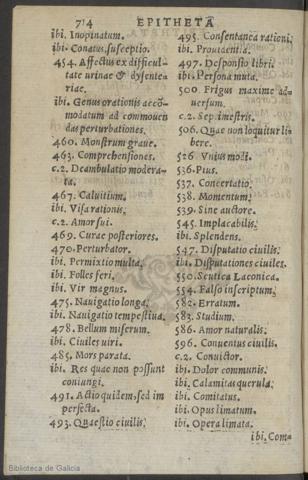 714 EPITHETA
ibi. Inopinatum.
ibi. Conatus, susceptio.
454. Affectus ex difficul-
tate urinae & dysente-
riae.
ibi. Genus orationis accõ-
modatum ad commouen
das perturbationes.
460. Monstrum graue.
463. Comprehensiones.
c.2. Deambulatio modera-
ta.
467. Caluitium.
ibi. Visa rationis.
c.2. Amor sui.
469. Curae posteriores.
470. Perturbator.
ibi. Permixtio multa.
ibi. Folles feri.
ibi. Vir magnus.
475. Nauigatio longa.
ibi. Nauigatio tempestiua.
478. Bellum miserum.
ibi. Ciuiles uiri.
485. Mors parata.
ibi. Res quae non possunt
coniungi.
491. Actio quidem, sed im
perfecta.
493. Quaestio ciuilis.
495. Consentanea rationi.
ibi. Prouidentia.
497. Desponsio libri.
ibi. Persona muta.
500. Frigus maxime ad-
uersum.
c.2. Sep imestris.
506. Quae non loquitur li-
bere.
526 Vnius modi.
536. Pius.
537. Concertatio.
538. Momentum.
539. Sine auctore.
545. Implacabilis.
ibi. Splendens.
547. Disputator ciuilis.
ibi. Disputationes ciuiles.
550. Scutica Laconica.
554. Falso inscriptum.
582. Erratum.
583. Studium.
586. Amor naturalis.
596. Conuentus ciuilis.
c.2. Conuictor.
ibi. Dolor communis.
ibi. Calamitas querula.
ibi. Comitatus.
ibi. Opus limatum.
ibi. Opera limata.
ibi. Com-
Biblioteca de Galicia